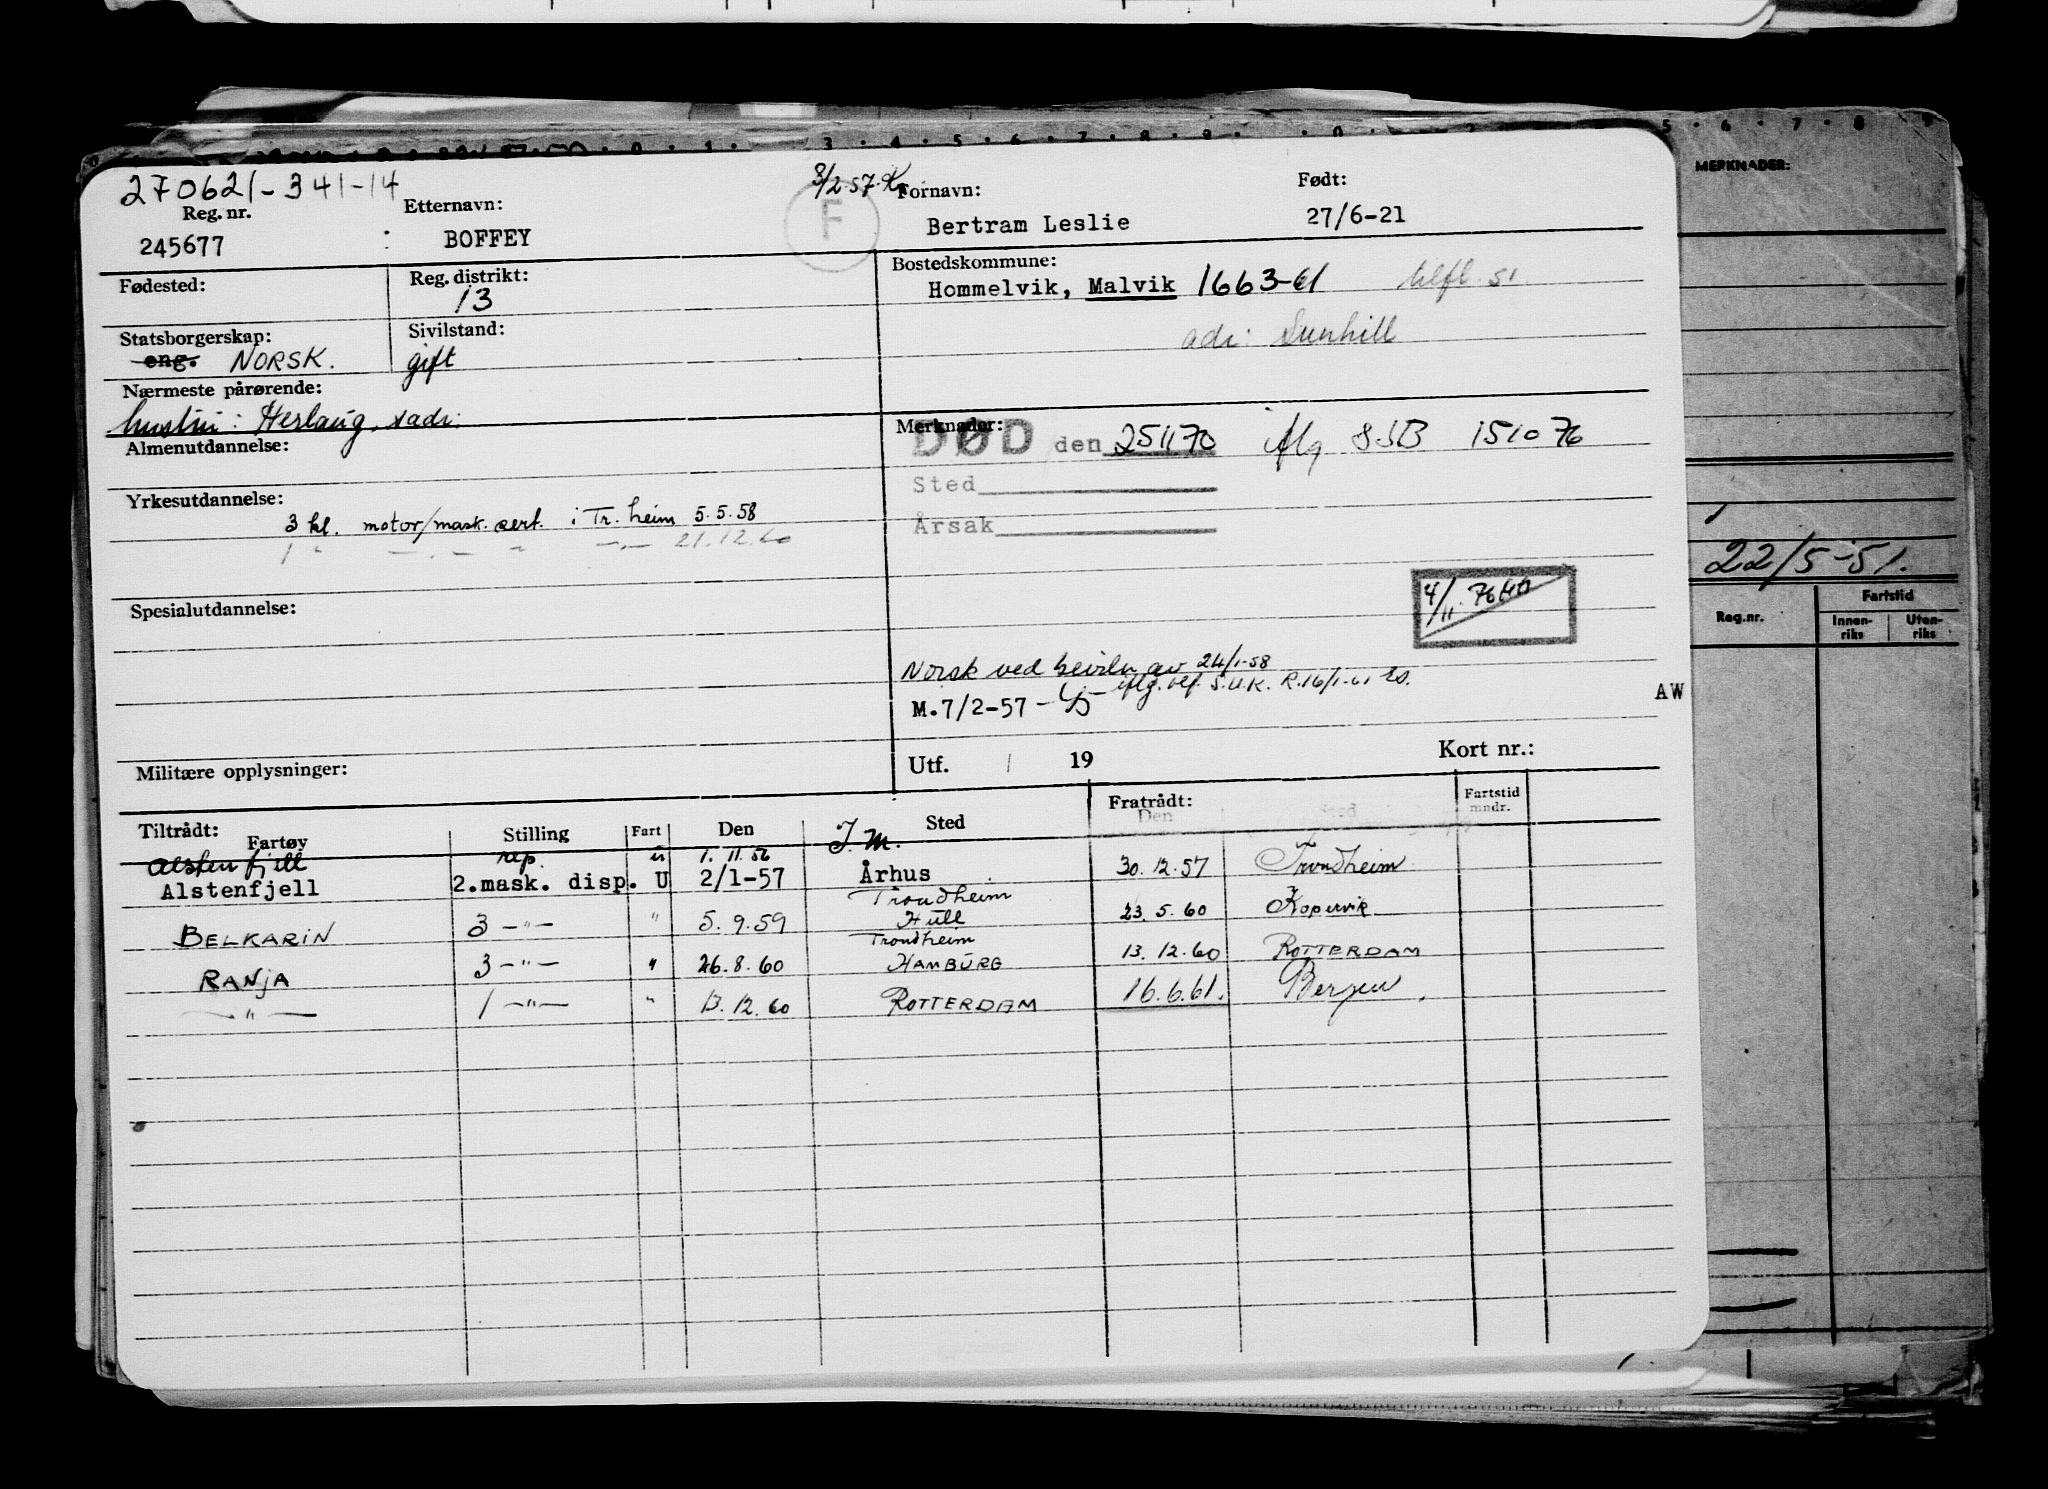 3 · 4 · 5 · 6 · 7 · 8 · 9
5 · 6 · 7 · 8 · 9
MERKNADER:
270621-341-14
3/2.57.
F
Reg. nr.
245677
Etternavn:
BOFFEY
Fornavn:
Bertram Leslie
Født:
27/6-21
Fødested:
Reg. distrikt:
13
Bostedskommune:
Hommelvik, Malvik 1663-61
adr: Sunhill
Statsborgerskap:
eng. NORSK.
Sivilstand:
gift
Nærmeste pårørende:
hustru: Herlaug, s adr:
Almenutdannelse:
Merknader:
DØD den 251170 iflg SSB 151076
Sted
Årsak
Yrkesutdannelse:
3 kl. motor/mask. sert. i Tr.heim 5.5.58
1 " — " — " — " — 21.12.60
Spesialutdannelse:
4/11.76
Norsk ved beviln av 24/1-58
iflg. S.U.K. R.16/1-61
M.7/2-57
AW
Militære opplysninger:
Utf. / 19
Kort nr.:
Tiltrådt:
Fartøy
Stilling
Fart
Den
Sted
J.M.
Fratrådt:
Den
Sted
Fartstid
mndr.
Alstenfjell rep. u 1.11.56
Alstenfjell 2.mask. disp. U 2/1-57 Århus 30.12.57 Trondheim
Trondheim
BELKARIN 3 —"— " 5.9.59 Hull 23.5.60 Kopervik
Trondheim
RANJA 3 —"— " 26.8.60 HAMBURG 13.12.60 ROTTERDAM
—"— 1 —"— " 13.12.60 ROTTERDAM 16.6.61. Bergen
22/5-51.
Reg.nr.
Fartstid
Innen-
riks
Uten-
riks